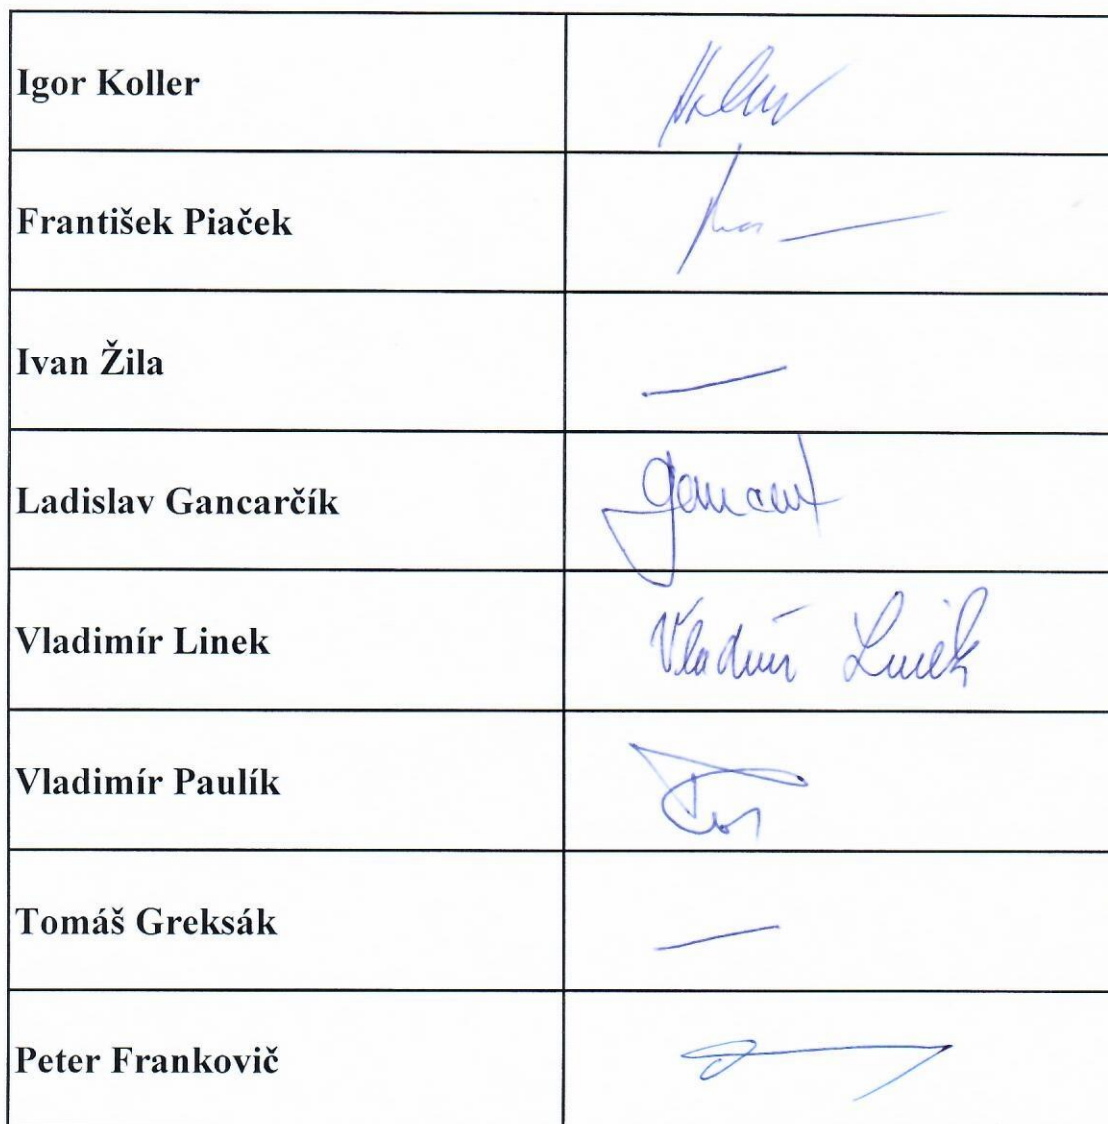 Igor Koller
František Piaček
Ivan Žila
Ladislav Gancarčík
Vladimír Linek
Vladimír Linek
Vladimír Paulík
Tomáš Greksák
Peter Frankovič